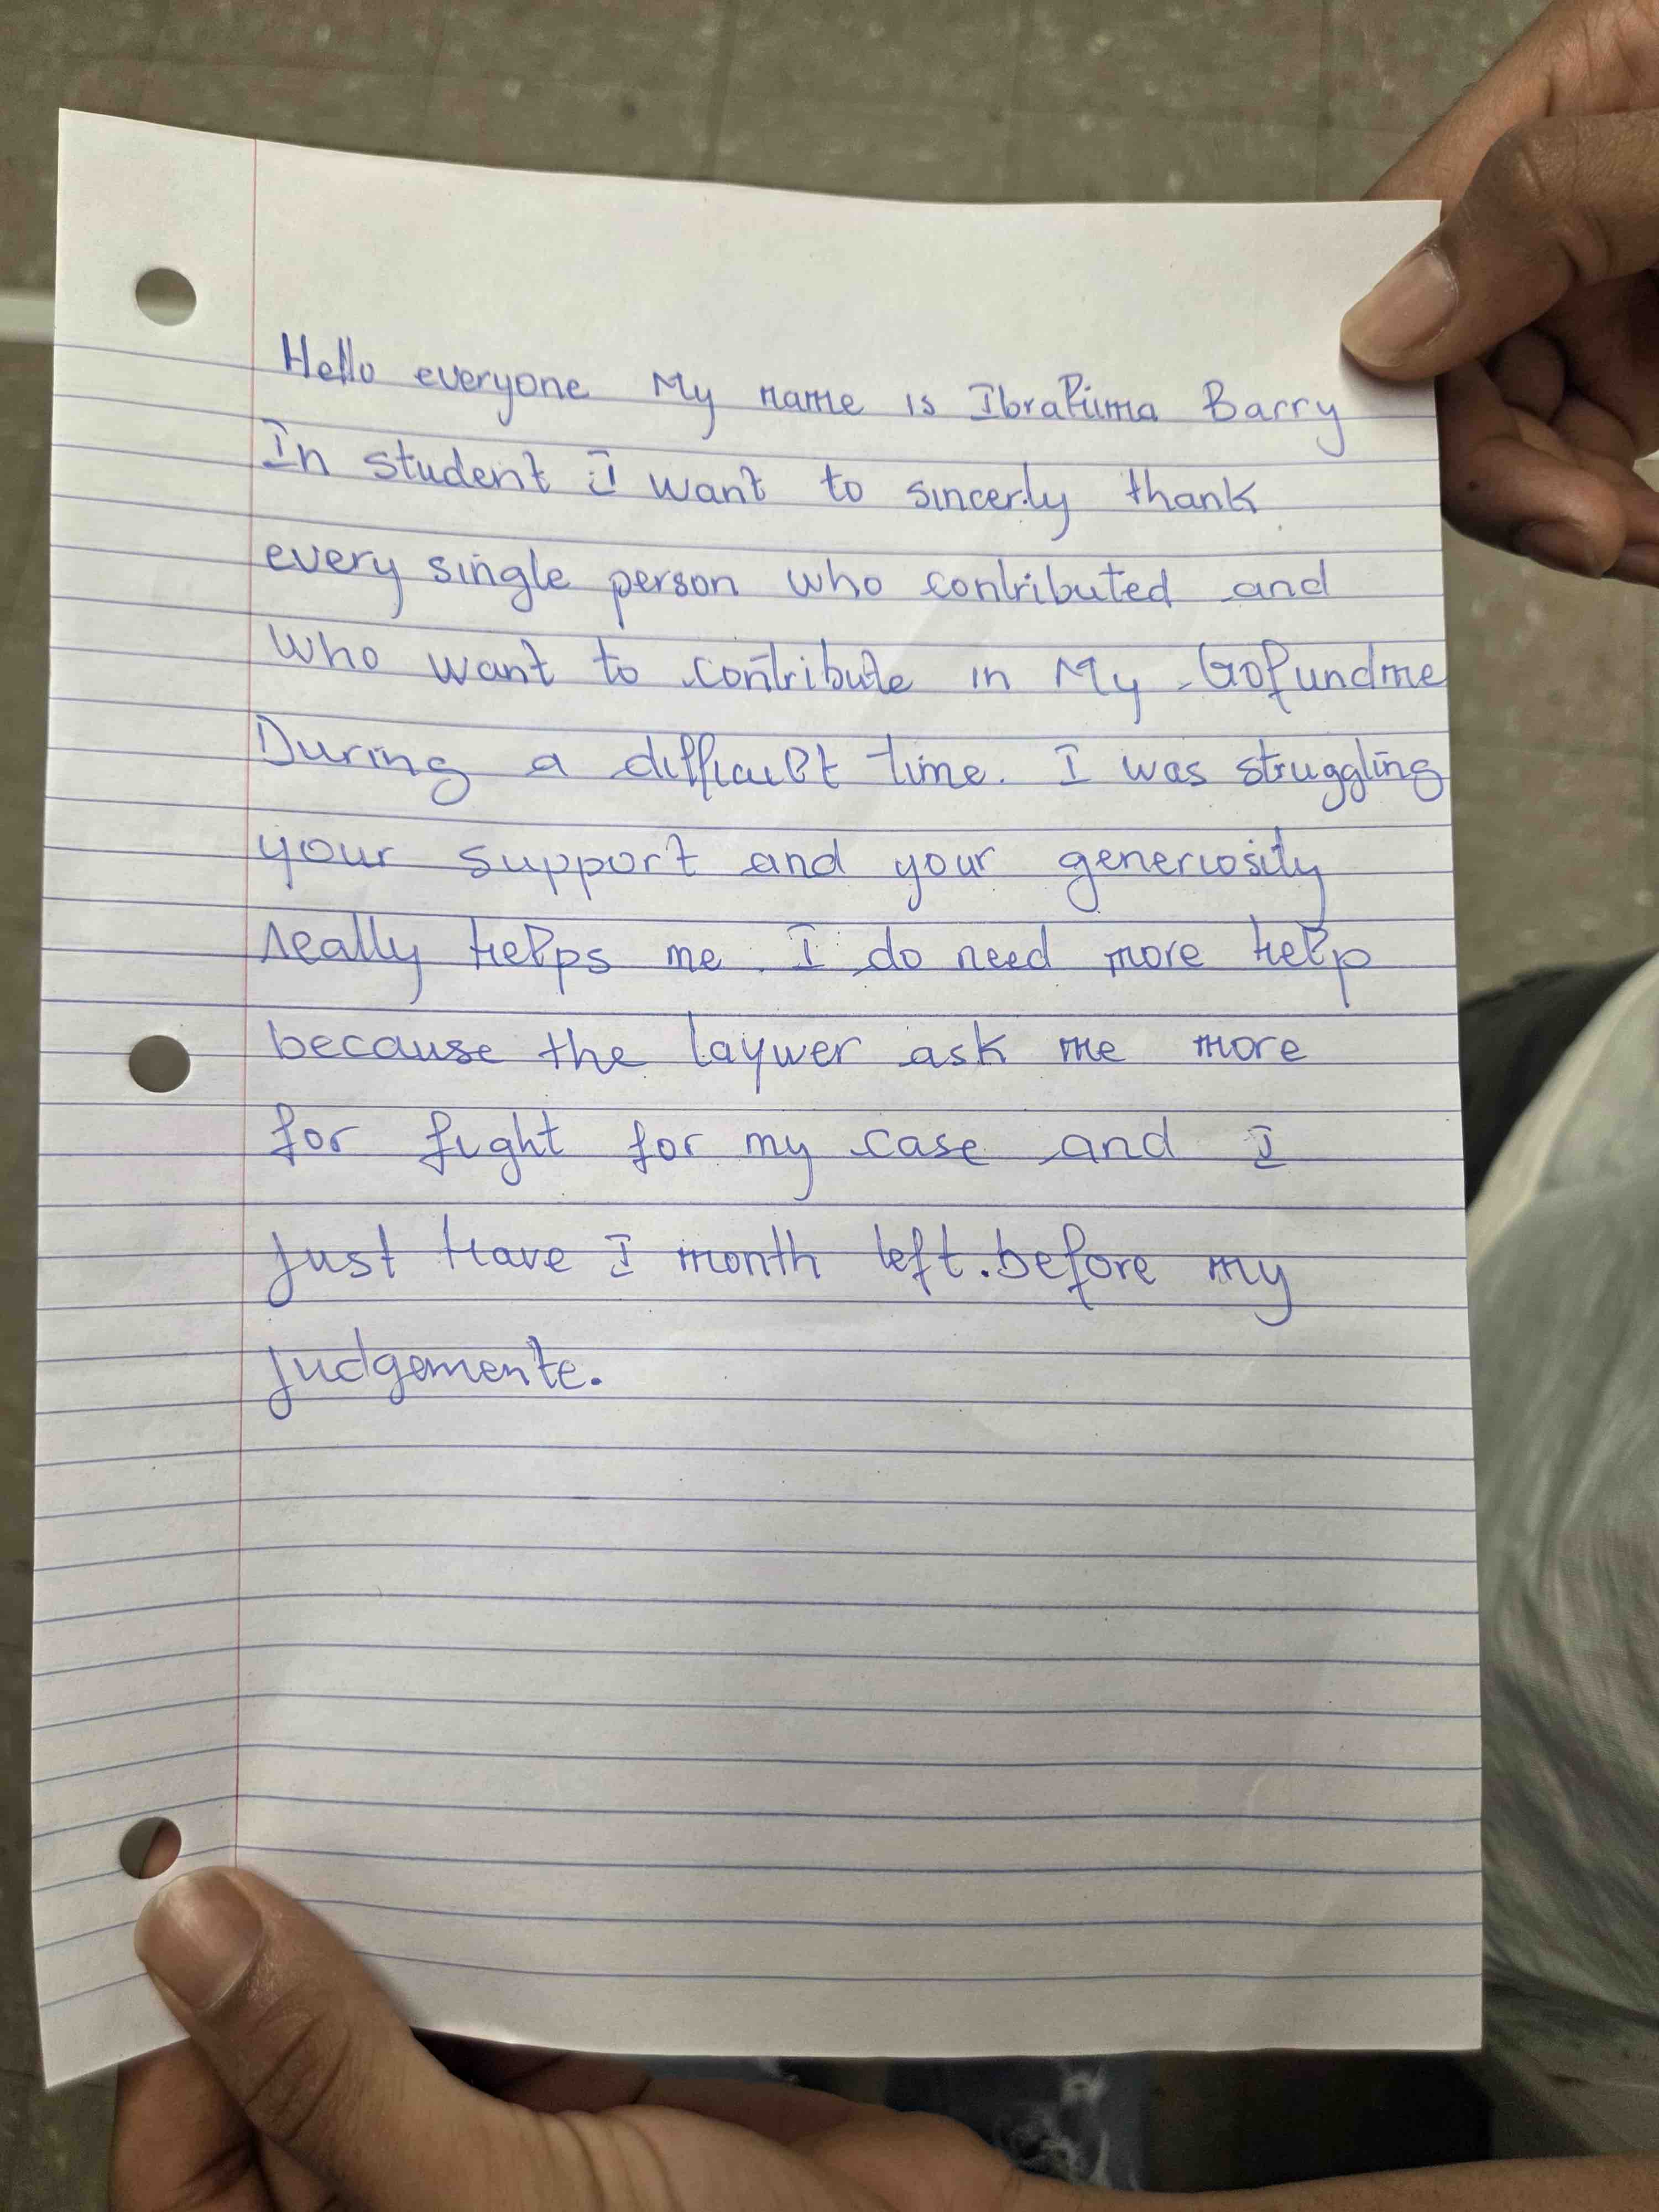 Hello everyone My name is Ibrahima Barry
In student I want to sincerly thank
every single person who contributed and
who want to contribute in My Gofundme
During a difficult time. I was struggling
your support and your generiosity
really helps me. I do need more help
because the laywer ask me more
for fight for my case and I
just have 1 month left.before my
judgemente.